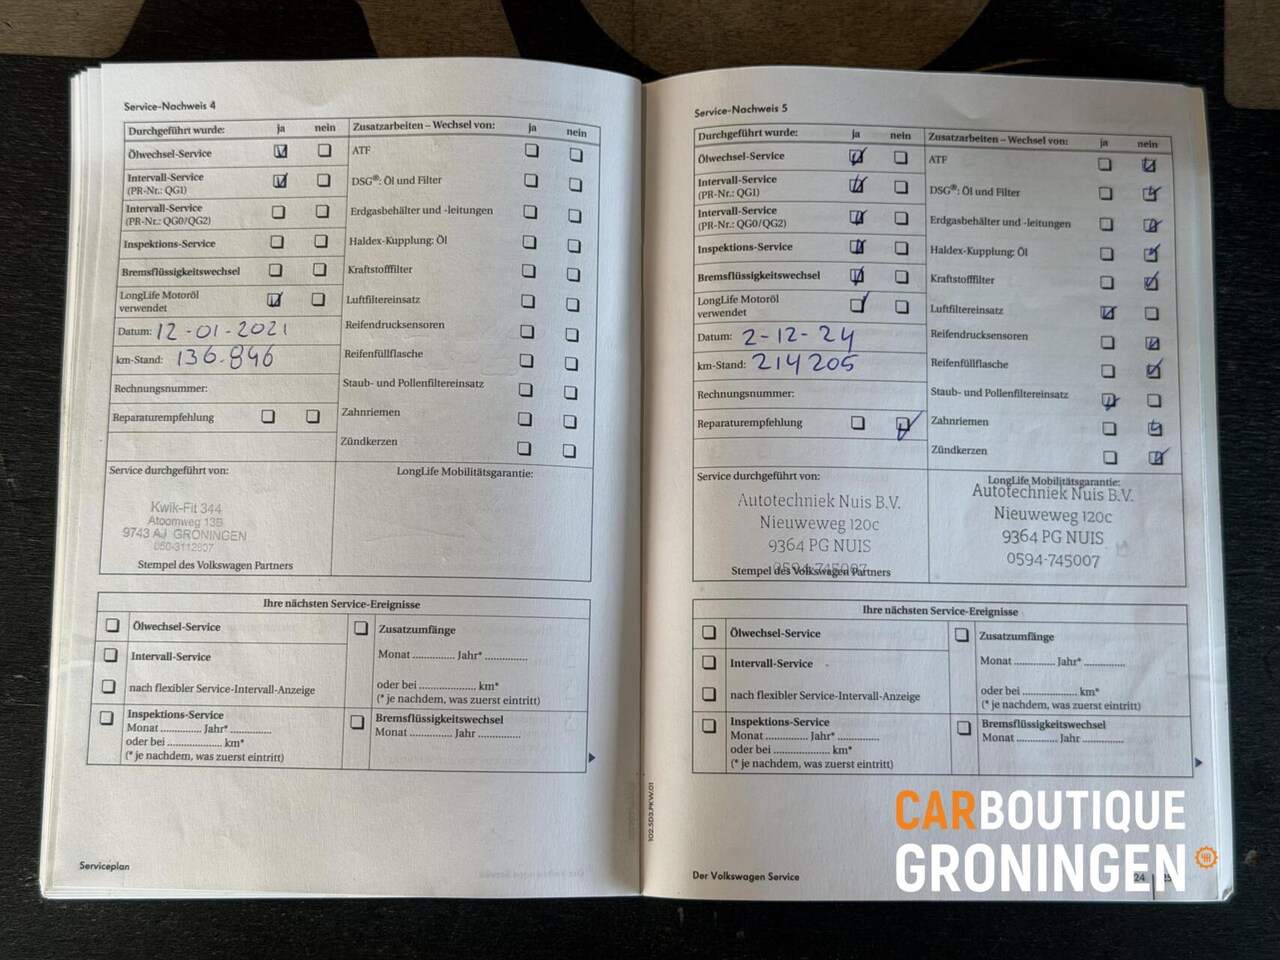 Service-Nachweis 4
Durchgeführt wurde: ja nein
Ölwechsel-Service
Intervall-Service
(PR-Nr.: QG1)
Intervall-Service
(PR-Nr.: QG0/QG2)
Inspektions-Service
Bremsflüssigkeitswechsel
LongLife Motoröl
verwendet
Datum: 12-01-2021
km-Stand: 136.846
Rechnungsnummer:
Reparaturempfehlung
Zusatzarbeiten – Wechsel von: ja nein
ATF
DSG®: Öl und Filter
Erdgasbehälter und -leitungen
Haldex-Kupplung: Öl
Kraftstofffilter
Luftfiltereinsatz
Reifendrucksensoren
Reifenfüllflasche
Staub- und Pollenfiltereinsatz
Zahnriemen
Zündkerzen
Service durchgeführt von:
Kwik-Fit 344
Atoomweg 13B
9743 AJ GRONINGEN
050-3112807
Stempel des Volkswagen Partners
LongLife Mobilitätsgarantie:
Ihre nächsten Service-Ereignisse
Ölwechsel-Service
Intervall-Service
nach flexibler Service-Intervall-Anzeige
Inspektions-Service
Monat .............. Jahr* ..............
oder bei ................... km*
(* je nachdem, was zuerst eintritt)
Zusatzumfänge
Monat .............. Jahr* ..............
oder bei ................... km*
(* je nachdem, was zuerst eintritt)
Bremsflüssigkeitswechsel
Monat .............. Jahr ..............
Serviceplan
Service-Nachweis 5
Durchgeführt wurde: ja nein
Ölwechsel-Service
Intervall-Service
(PR-Nr.: QG1)
Intervall-Service
(PR-Nr.: QG0/QG2)
Inspektions-Service
Bremsflüssigkeitswechsel
LongLife Motoröl
verwendet
Datum: 2-12-24
km-Stand: 214205
Rechnungsnummer:
Reparaturempfehlung
Zusatzarbeiten – Wechsel von: ja nein
ATF
DSG®: Öl und Filter
Erdgasbehälter und -leitungen
Haldex-Kupplung: Öl
Kraftstofffilter
Luftfiltereinsatz
Reifendrucksensoren
Reifenfüllflasche
Staub- und Pollenfiltereinsatz
Zahnriemen
Zündkerzen
Service durchgeführt von:
Autotechniek Nuis B.V.
Nieuweweg 120c
9364 PG NUIS
0594-745007
Stempel des Volkswagen Partners
LongLife Mobilitätsgarantie:
Autotechniek Nuis B.V.
Nieuweweg 120c
9364 PG NUIS
0594-745007
Ihre nächsten Service-Ereignisse
Ölwechsel-Service
Intervall-Service
nach flexibler Service-Intervall-Anzeige
Inspektions-Service
Monat .............. Jahr* ..............
oder bei ................... km*
(* je nachdem, was zuerst eintritt)
Zusatzumfänge
Monat .............. Jahr* ..............
oder bei ................... km*
(* je nachdem, was zuerst eintritt)
Bremsflüssigkeitswechsel
Monat .............. Jahr ..............
102.5D3.PKW.01
Der Volkswagen Service
24
CARBOUTIQUE
GRONINGEN